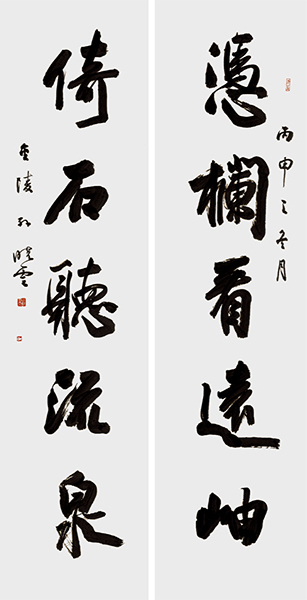 丙申之冬月
憑欄看遠岫
倚石聽流泉
金陵孙晓云